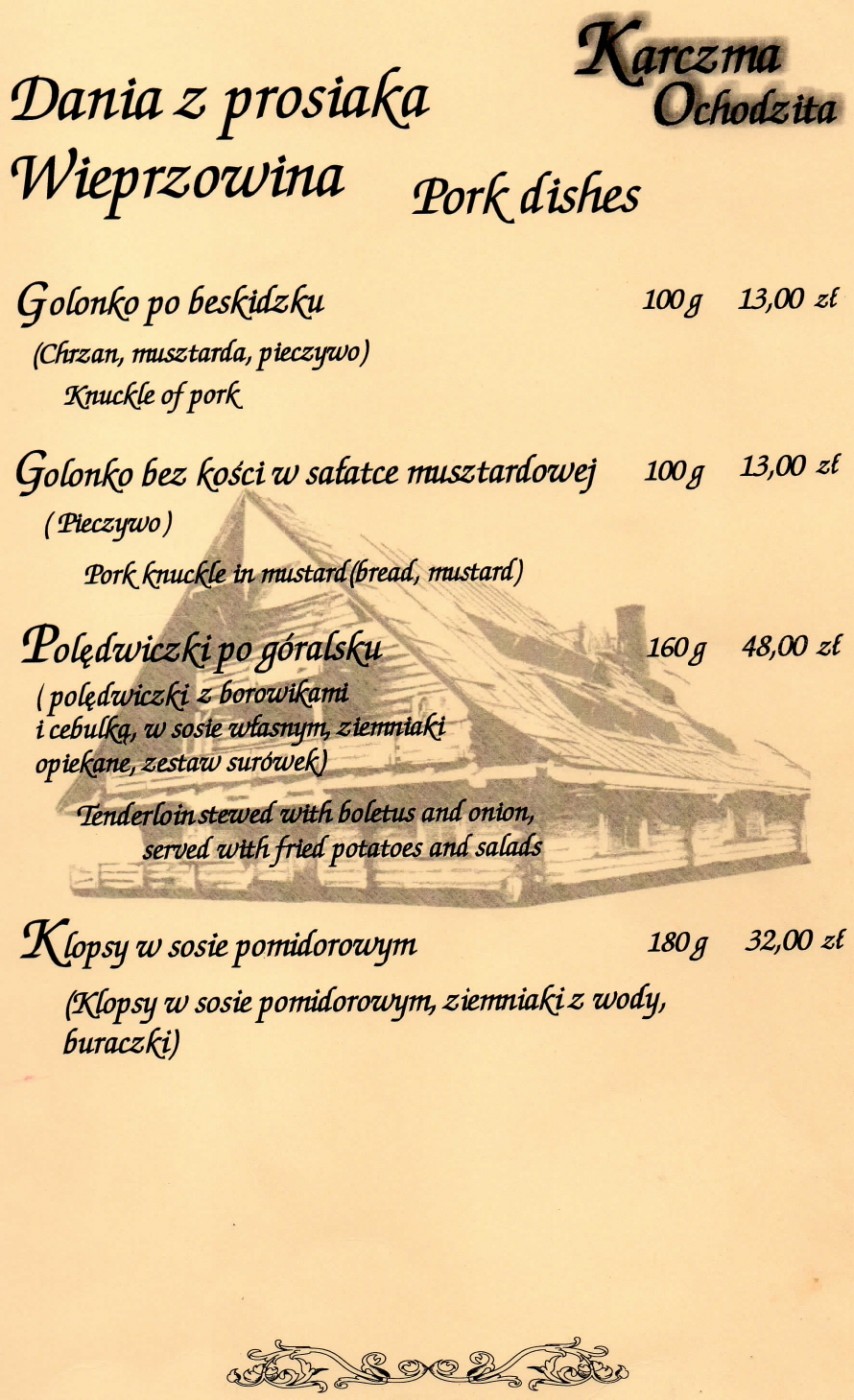 Karczma
Ochodzita
Dania z prosiaka
Wieprzowina
Pork dishes
Golonko po beskidzku 100 g 13,00 zł
(Chrzan, musztarda, pieczywo)
Knuckle of pork
Golonko bez kości w sałatce musztardowej 100 g 13,00 zł
( Pieczywo )
Pork knuckle in mustard(bread, mustard)
Polędwiczki po góralsku 160 g 48,00 zł
( polędwiczki z borowikami
i cebulką, w sosie własnym, ziemniaki
opiekane, zestaw surówek)
Tenderloin stewed with boletus and onion,
served with fried potatoes and salads
Klopsy w sosie pomidorowym 180 g 32,00 zł
(Klopsy w sosie pomidorowym, ziemniaki z wody,
buraczki)